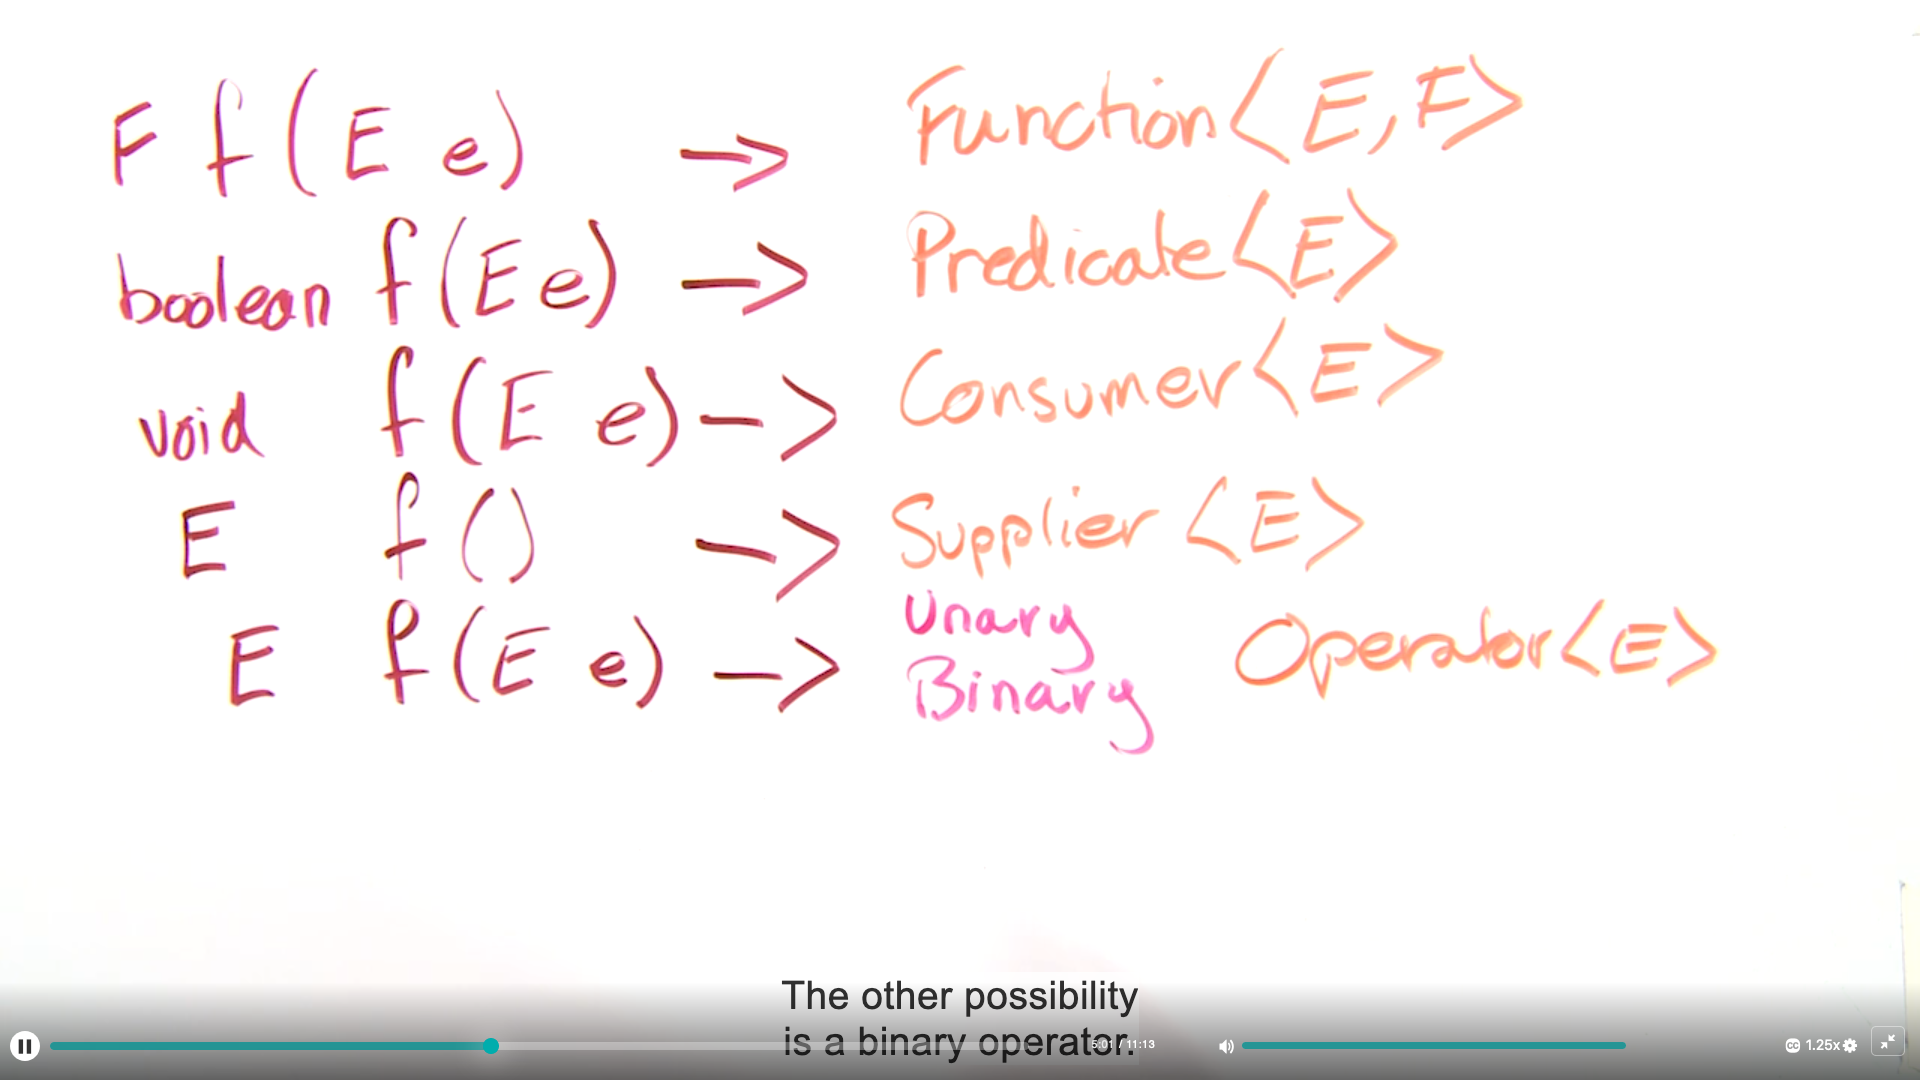 F f(E e) -> Function<E,F>
boolean f(E e) -> Predicate<E>
void f(E e) -> Consumer<E>
E f() -> Supplier<E>
E f(E e) -> Unary Operator<E>
Binary
The other possibility
is a binary operator.
5:01 / 11:13
CC 1.25x